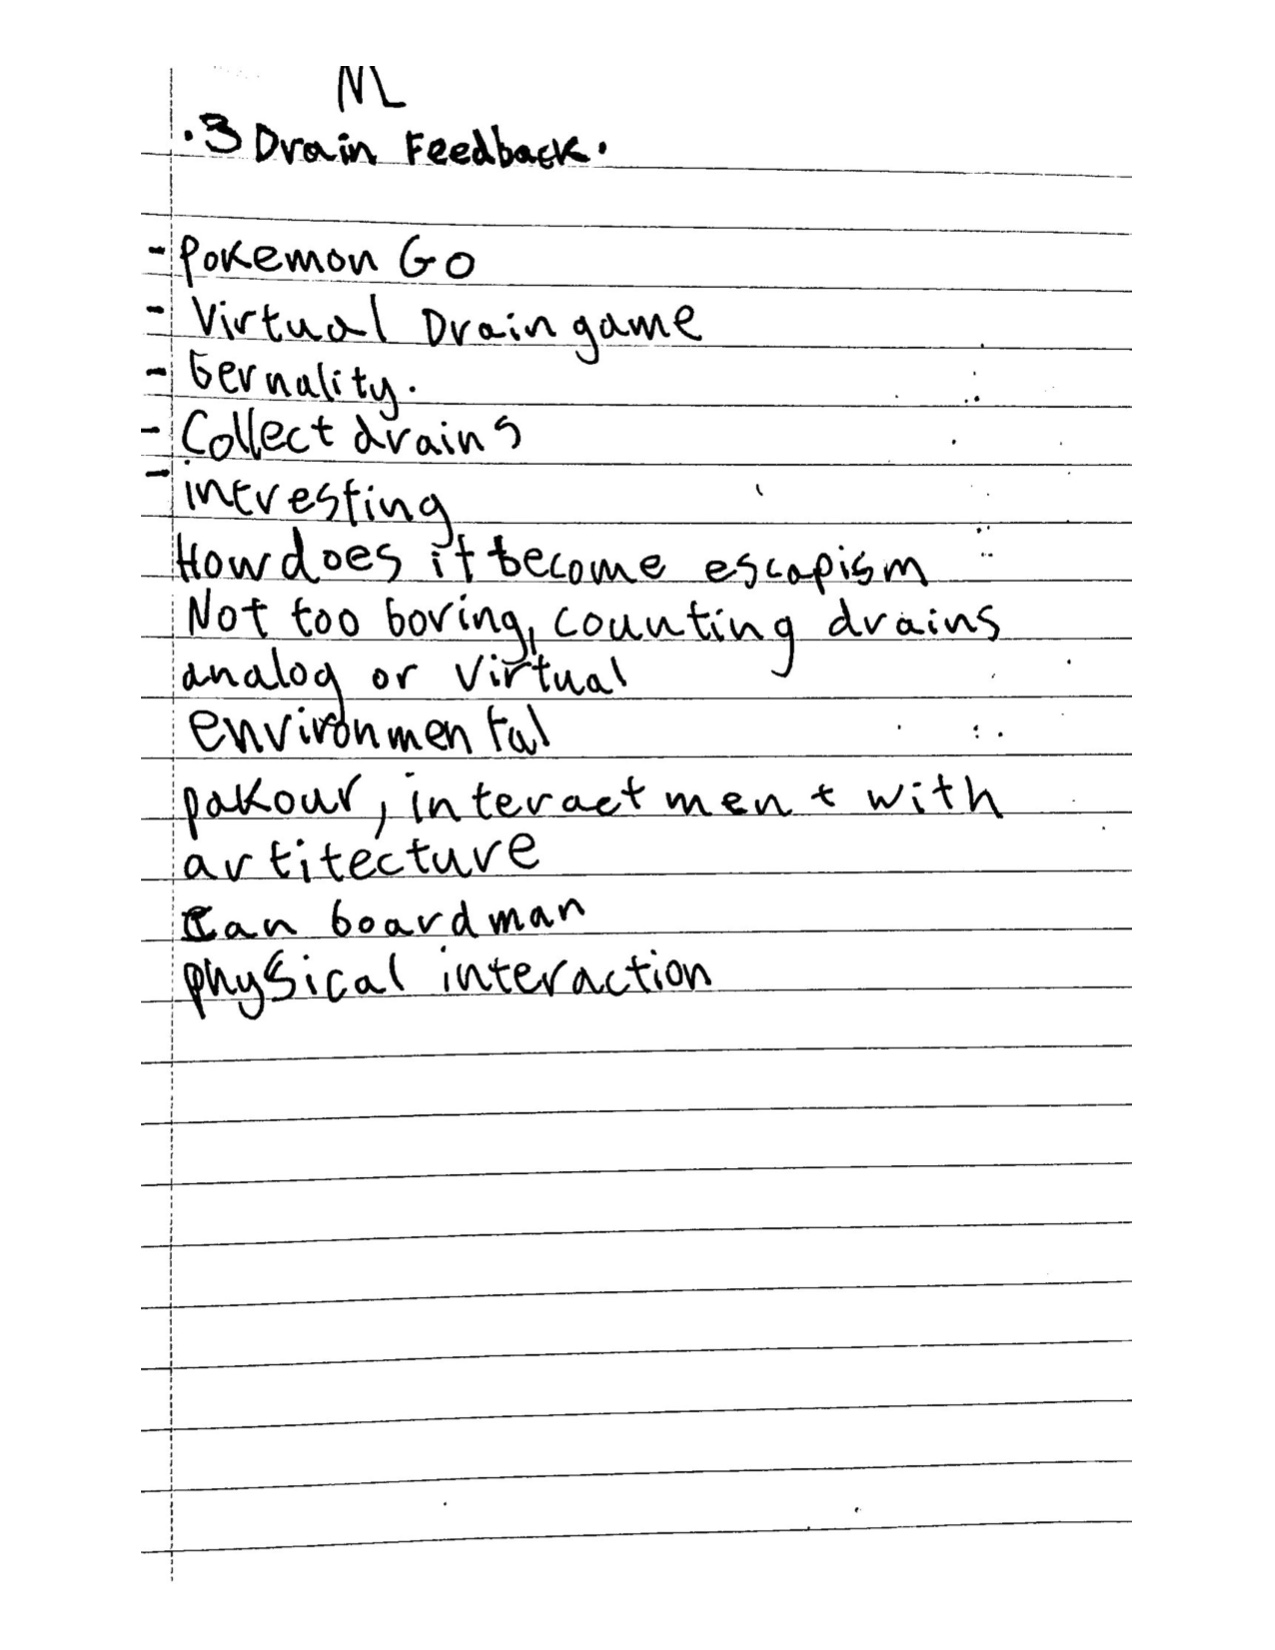 NL
.3 Drain Feedback.
- Pokemon Go
- Virtual Drain game
- Gernality.
- Collect drains
- intresting
How does it become escapism
Not too boring, counting drains
analog or virtual
environmental
pakour, interactment with
artitecture
Ian boardman
physical interaction